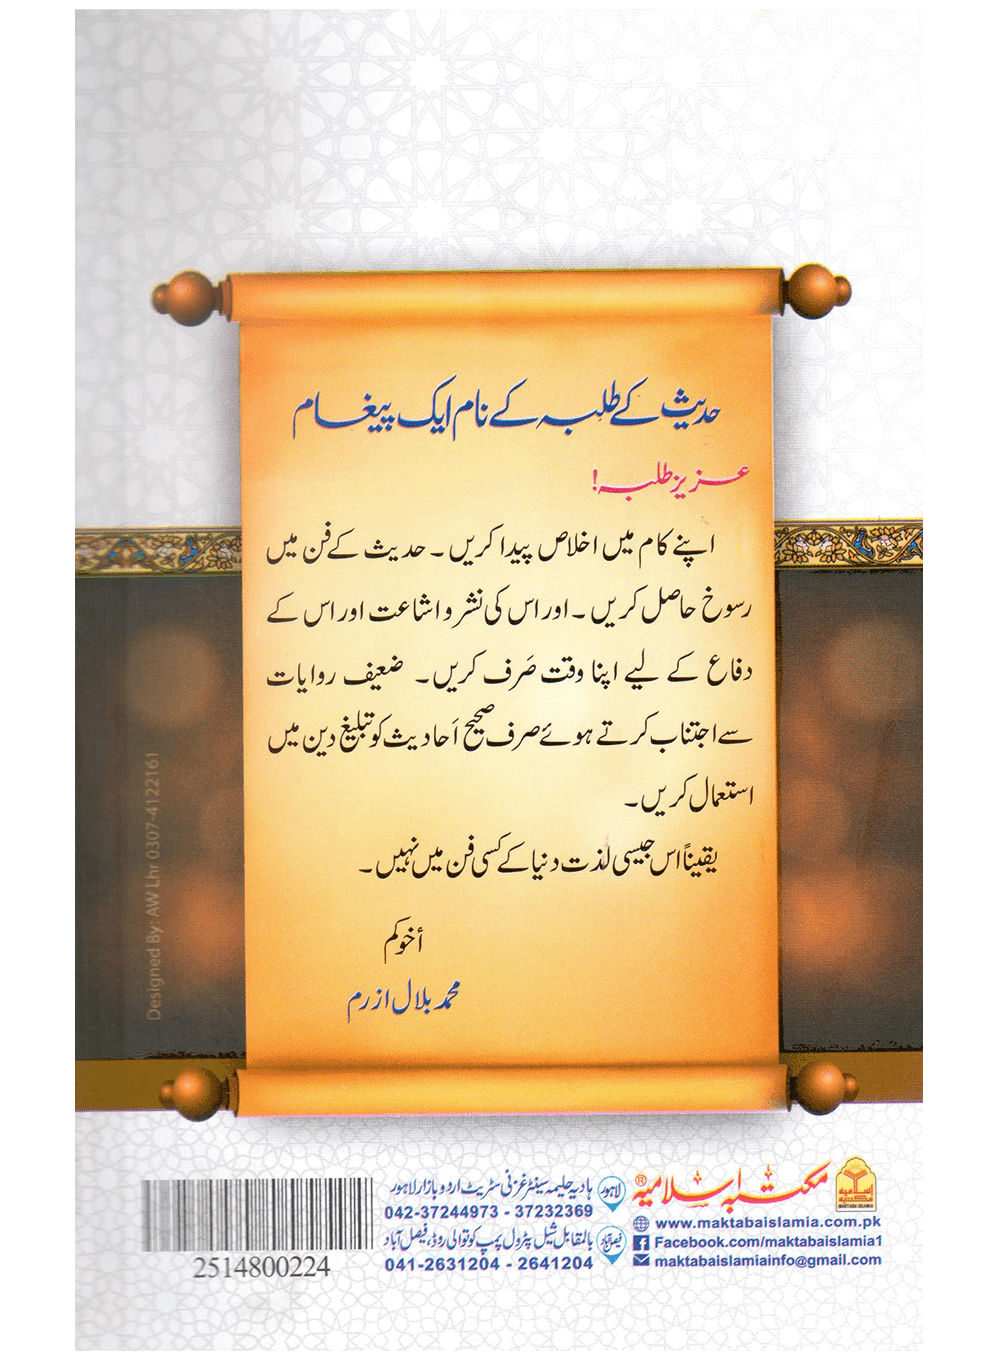 حدیث کے طلبہ کے نام ایک پیغام
عزیز طلبہ!
اپنے کام میں اخلاص پیدا کریں۔ حدیث کے فن میں
رسوخ حاصل کریں۔ اور اس کی نشر و اشاعت اور اس کے
دفاع کے لیے اپنا وقت صَرف کریں۔ ضعیف روایات
سے اجتناب کرتے ہوئے صرف صحیح اَحادیث کو تبلیغِ دین میں
استعمال کریں۔
یقیناً اس جیسی لذت دنیا کے کسی فن میں نہیں۔
أخوکم
محمد بلال ازرم
Designed By: AW Lhr 0307-4122161
اسلامیہ مکتبہ
MAKTABA ISLAMIA
مکتبہ اسلامیہ®
www.maktabaislamia.com.pk
Facebook.com/maktabaislamia1
maktabaislamiainfo@gmail.com
لاہور
ہادیہ حلیمہ سینٹر غزنی سٹریٹ اردو بازار لاہور
042-37244973 - 37232369
فیصل آباد
بالمقابل شیل پٹرول پمپ کوتوالی روڈ، فیصل آباد
041-2631204 - 2641204
2514800224